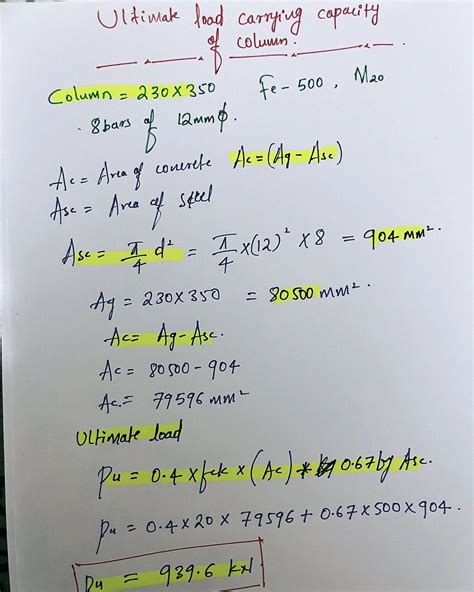 Ultimate load carrying capacity
of column.
Column = 230×350 Fe-500, M20
8bars of 12mmφ.
Ac = Area of concrete Ac=(Ag-Asc)
Asc = Area of steel
Asc = π/4 d² = π/4 ×(12)² ×8 = 904 mm².
Ag = 230×350 = 80500 mm².
Ac = Ag-Asc.
Ac = 80500-904
Ac = 79596 mm²
Ultimate load
Pu = 0.4×fck×(Ac) + 0.67 fy Asc.
Pu = 0.4×20×79596+0.67×500×904.
Pu = 939.6 kN